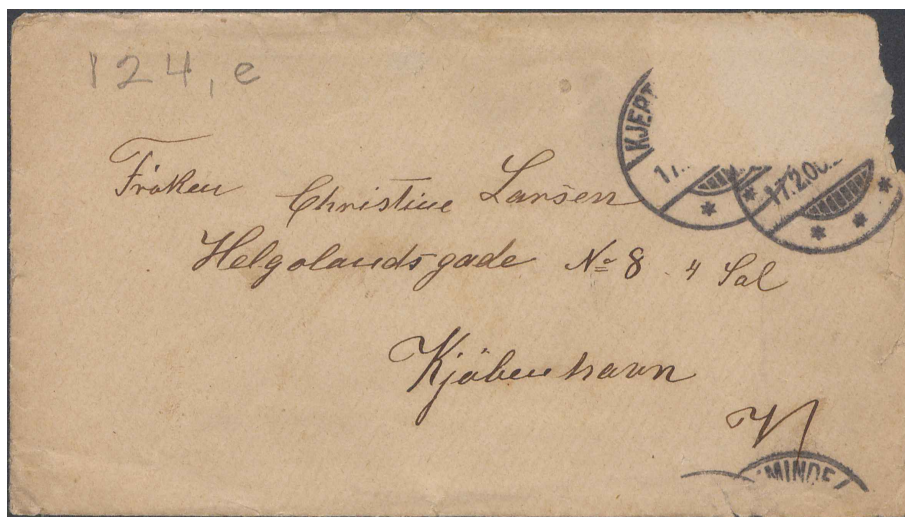 124, e
KJERT
17.
17.2.00.
Fröken Christine Larsen
Helgolandsgade No 8 4 Sal
Kjöbenhavn
V
MINDE